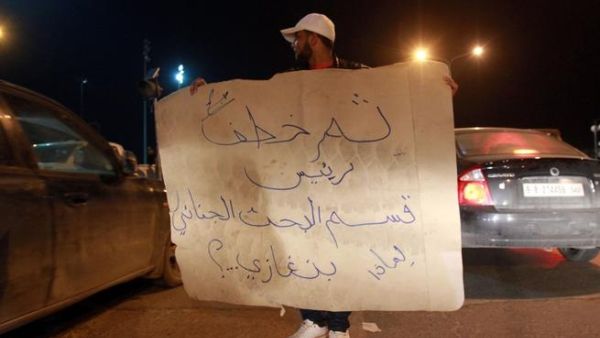 تم خطف
رئيس
قسم البحث الجنائي
لماذا بنغازي ..؟